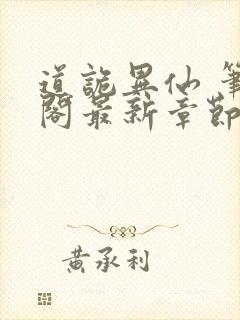 道詭異仙 筆
閣最新章節
黃承利